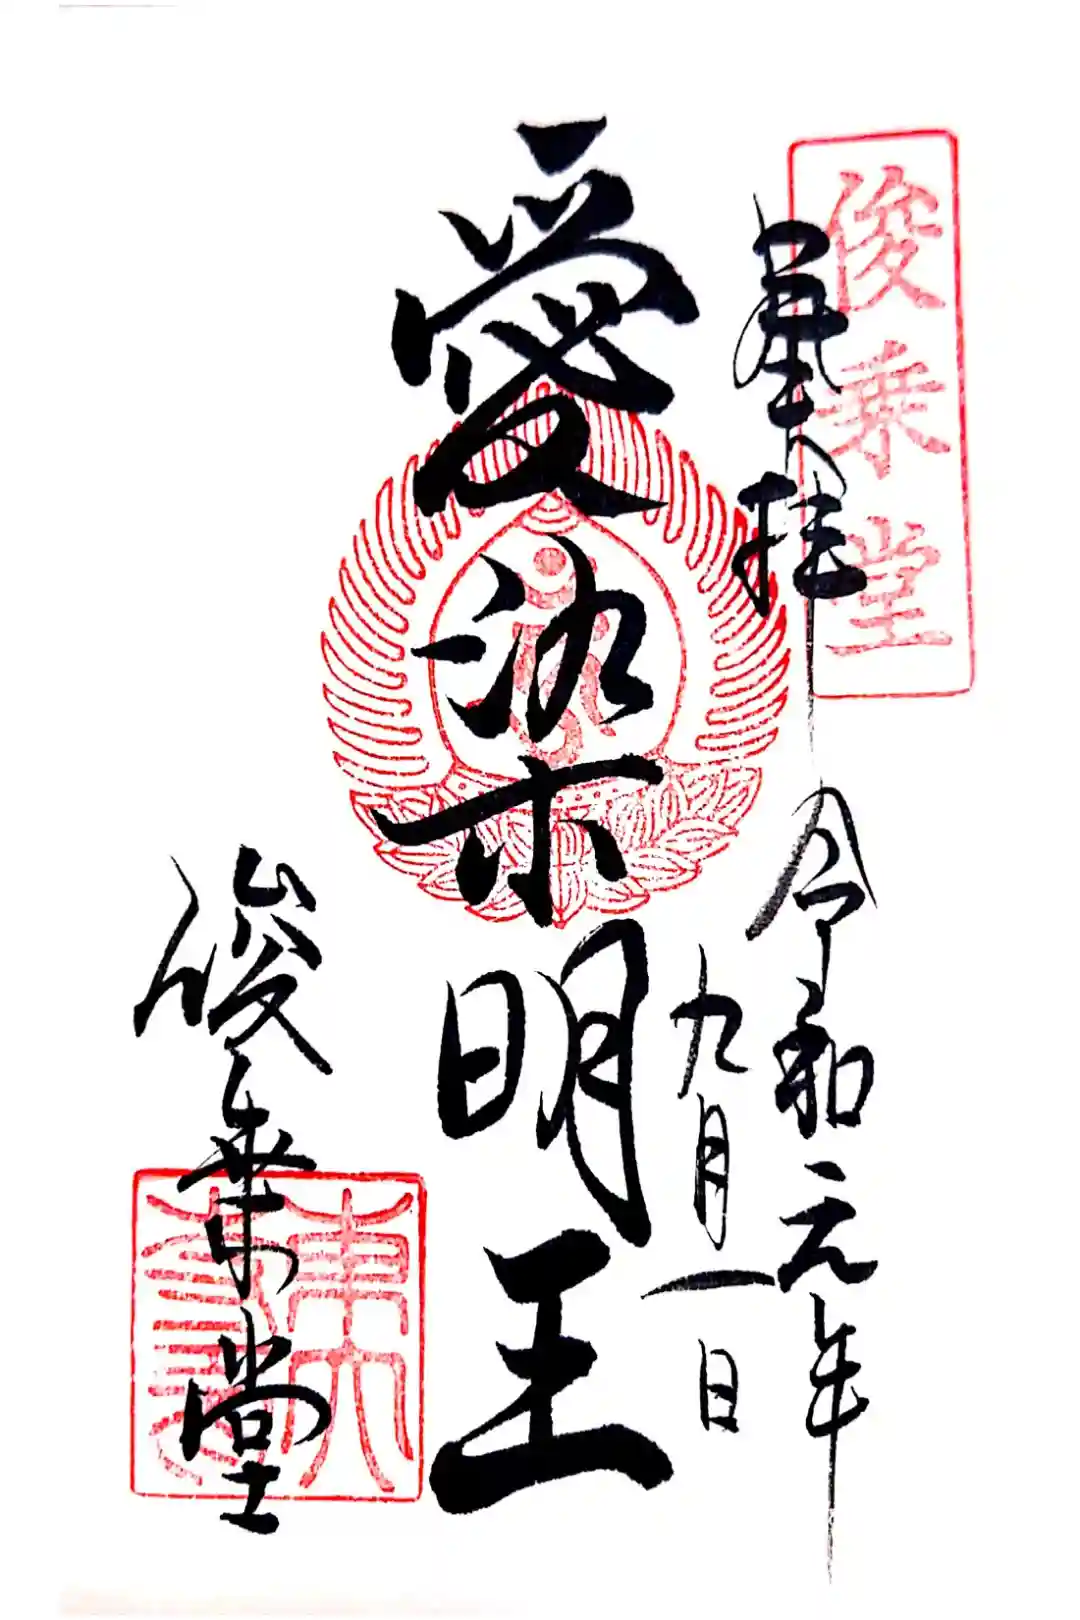 俊乗堂
奉拝
令和元年
九月一日
愛染明王
俊乗堂